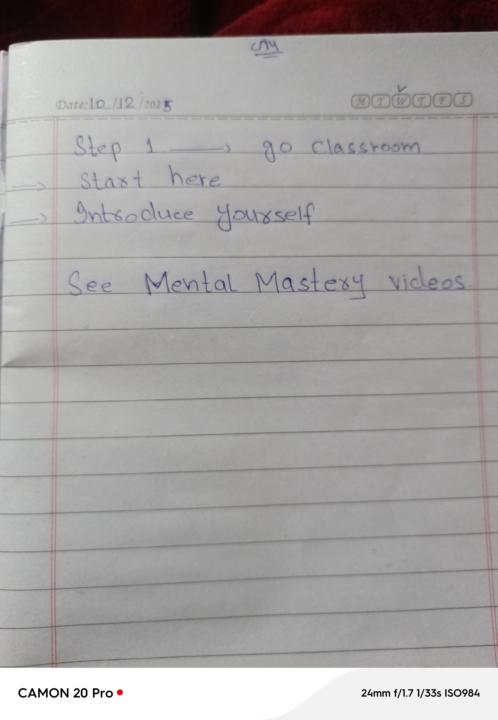 Date: 10/12/2025
M T W T F S
Step 1 → go classroom
→ Start here
→ Introduce yourself
See Mental Mastery videos
CAMON 20 Pro
24mm f/1.7 1/33s ISO984